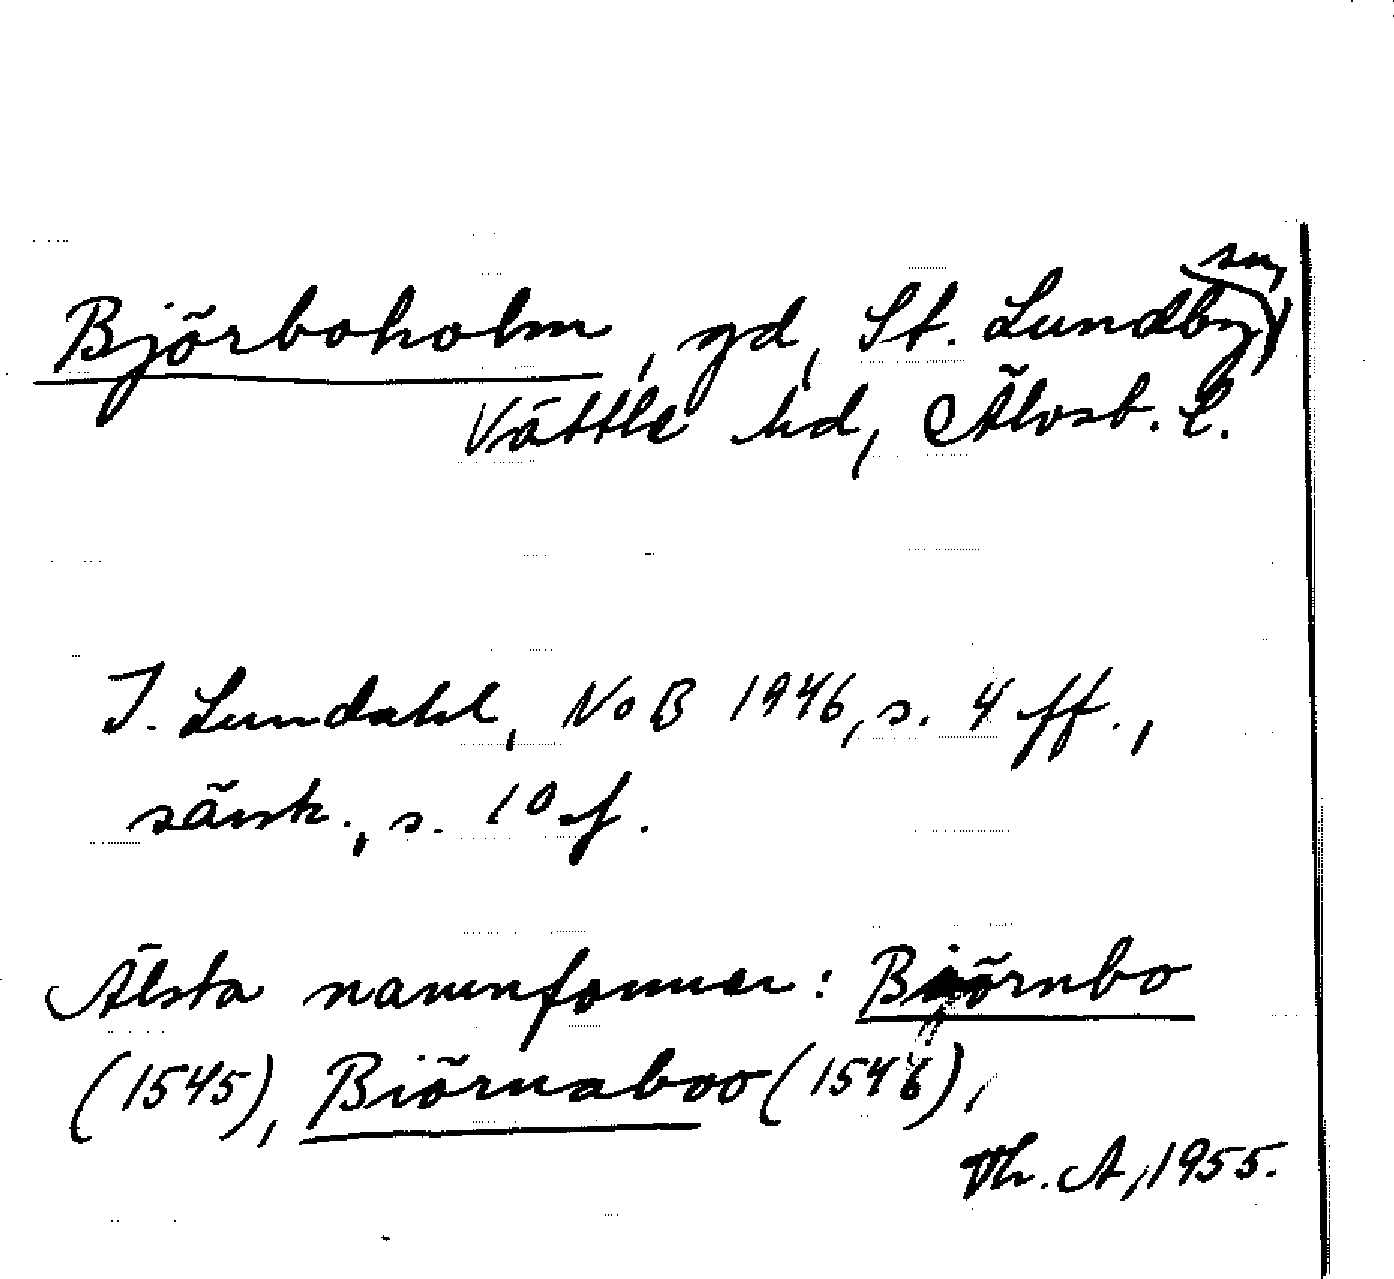 Björboholm, gd, St. Lundby sn,
Vättle hd, Älvsb. l.
I. Lundahl, NoB 1946, s. 4 ff.,
särsk., s. 10 f.
Älsta namnformer: Björnbo
(1545), Biörnaboo (1546),
Th. A, 1955.